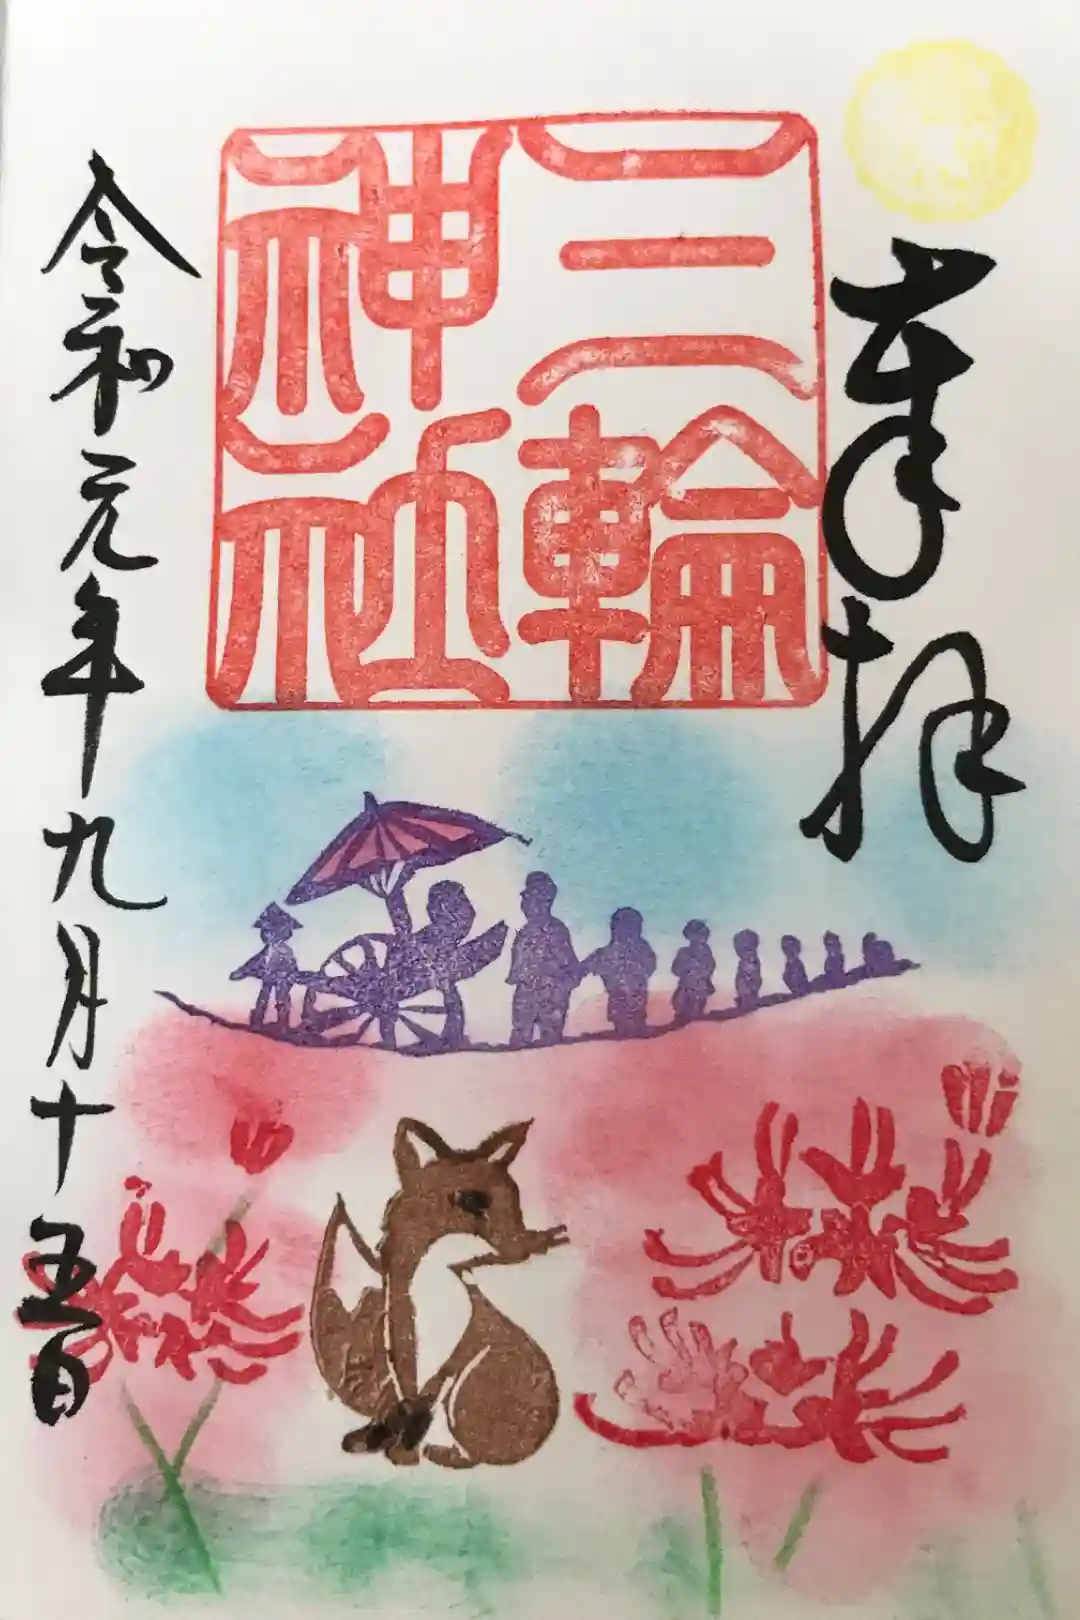 奉拝
三輪
神社
令和元年九月十五日